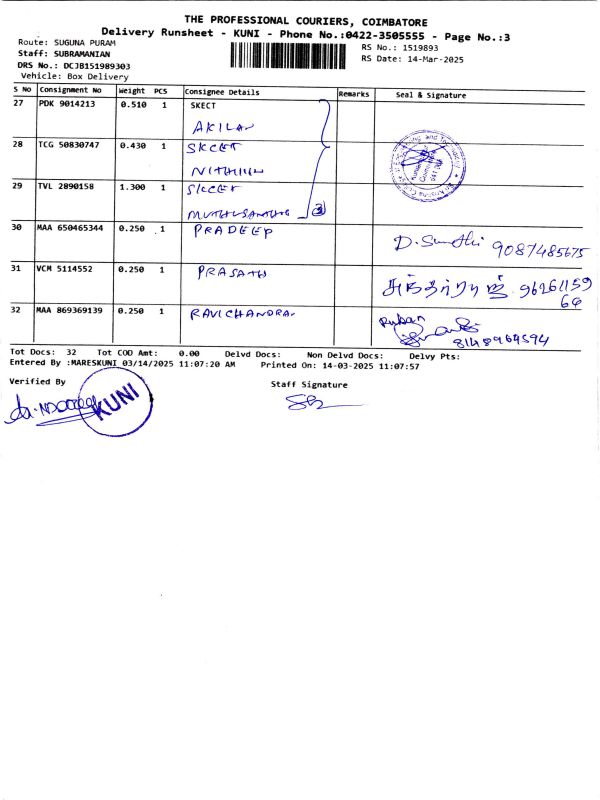 THE PROFESSIONAL COURIERS, COIMBATORE
Delivery Runsheet - KUNI - Phone No.:0422-3505555 - Page No.:3
Route: SUGUNA PURAM
Staff: SUBRAMANIAN
DRS No.: DCJB151989303
Vehicle: Box Delivery
RS No.: 1519893
RS Date: 14-Mar-2025
S No Consignment No Weight PCS Consignee Details Remarks Seal & Signature
27 PDK 9014213 0.510 1 SKECT
AKILAN
28 TCG 50830747 0.430 1 SKCET
NITHIN
29 TVL 2890158 1.300 1 SKCET
3
30 MAA 650465344 0.250 1 PRADEEP
D. Sumathi 9087485675
31 VCM 5114552 0.250 1 PRASATH
9626115966
32 MAA 869369139 0.250 1 RAVICHANDRAN
Ruban
8148969594
Tot Docs: 32 Tot COD Amt: 0.00 Delvd Docs: Non Delvd Docs: Delvy Pts:
Entered By :MARESKUNI 03/14/2025 11:07:20 AM Printed On: 14-03-2025 11:07:57
Verified By
Staff Signature
KUNI